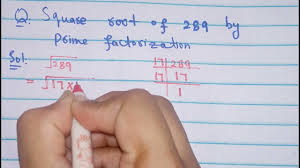 Q. Square root of 289 by
Prime factorization
Sol: √289 17 | 289
= √17× 17 | 17
1